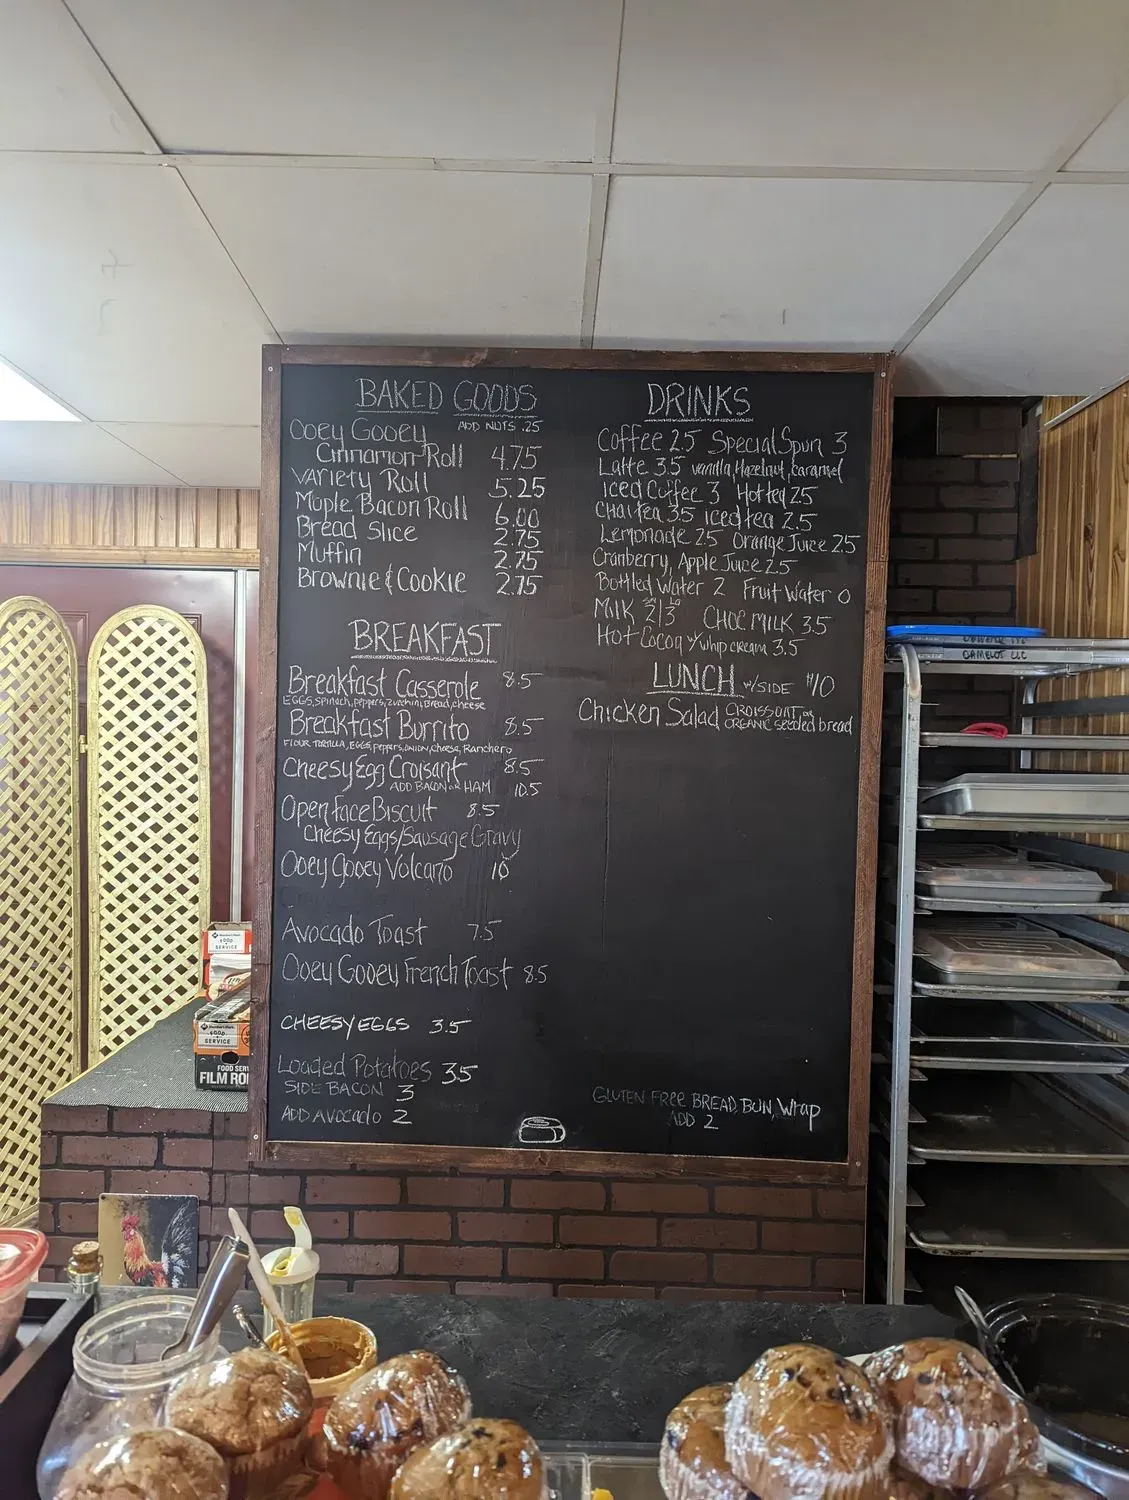 BAKED GOODS
ADD NUTS .25
Ooey Gooey
Cinnamon Roll 4.75
Variety Roll 5.25
Maple Bacon Roll 6.00
Bread Slice 2.75
Muffin 2.75
Brownie & Cookie 2.75
BREAKFAST
Breakfast Casserole 8.5
EGGS, spinach, peppers, zucchini, Bread, cheese
Breakfast Burrito 8.5
FLOUR TORTILLA, EGGS, peppers, onion, cheese, Ranchero
Cheesy Egg Croisant 8.5
ADD BACON or HAM 10.5
Open Face Biscuit 8.5
Cheesy Eggs/Sausage Gravy
Ooey Gooey Volcano 10
Avocado Toast 7.5
Ooey Gooey French Toast 8.5
CHEESY EGGS 3.5
Loaded Potatoes 3.5
SIDE BACON 3
ADD AVOCADO 2
DRINKS
Coffee 2.5 Special Spun 3
Latte 3.5 vanilla, Hazelnut, caramel
Iced Coffee 3 Hot tea 2.5
Chai tea 3.5 iced tea 2.5
Lemonade 2.5 Orange Juice 2.5
Cranberry, Apple Juice 2.5
Bottled Water 2 Fruit Water 0
Milk SM 2|LG 3 CHOC MILK 3.5
Hot Cocoa w/whip cream 3.5
LUNCH w/SIDE $10
Chicken Salad CROISSOAT or
ORGANIC seeded bread
GLUTEN FREE BREAD, BUN, Wrap
ADD 2
FOOD
SERVICE
FOOD
SERVICE
FOOD SERV
FILM RO
CAMELOT LLC